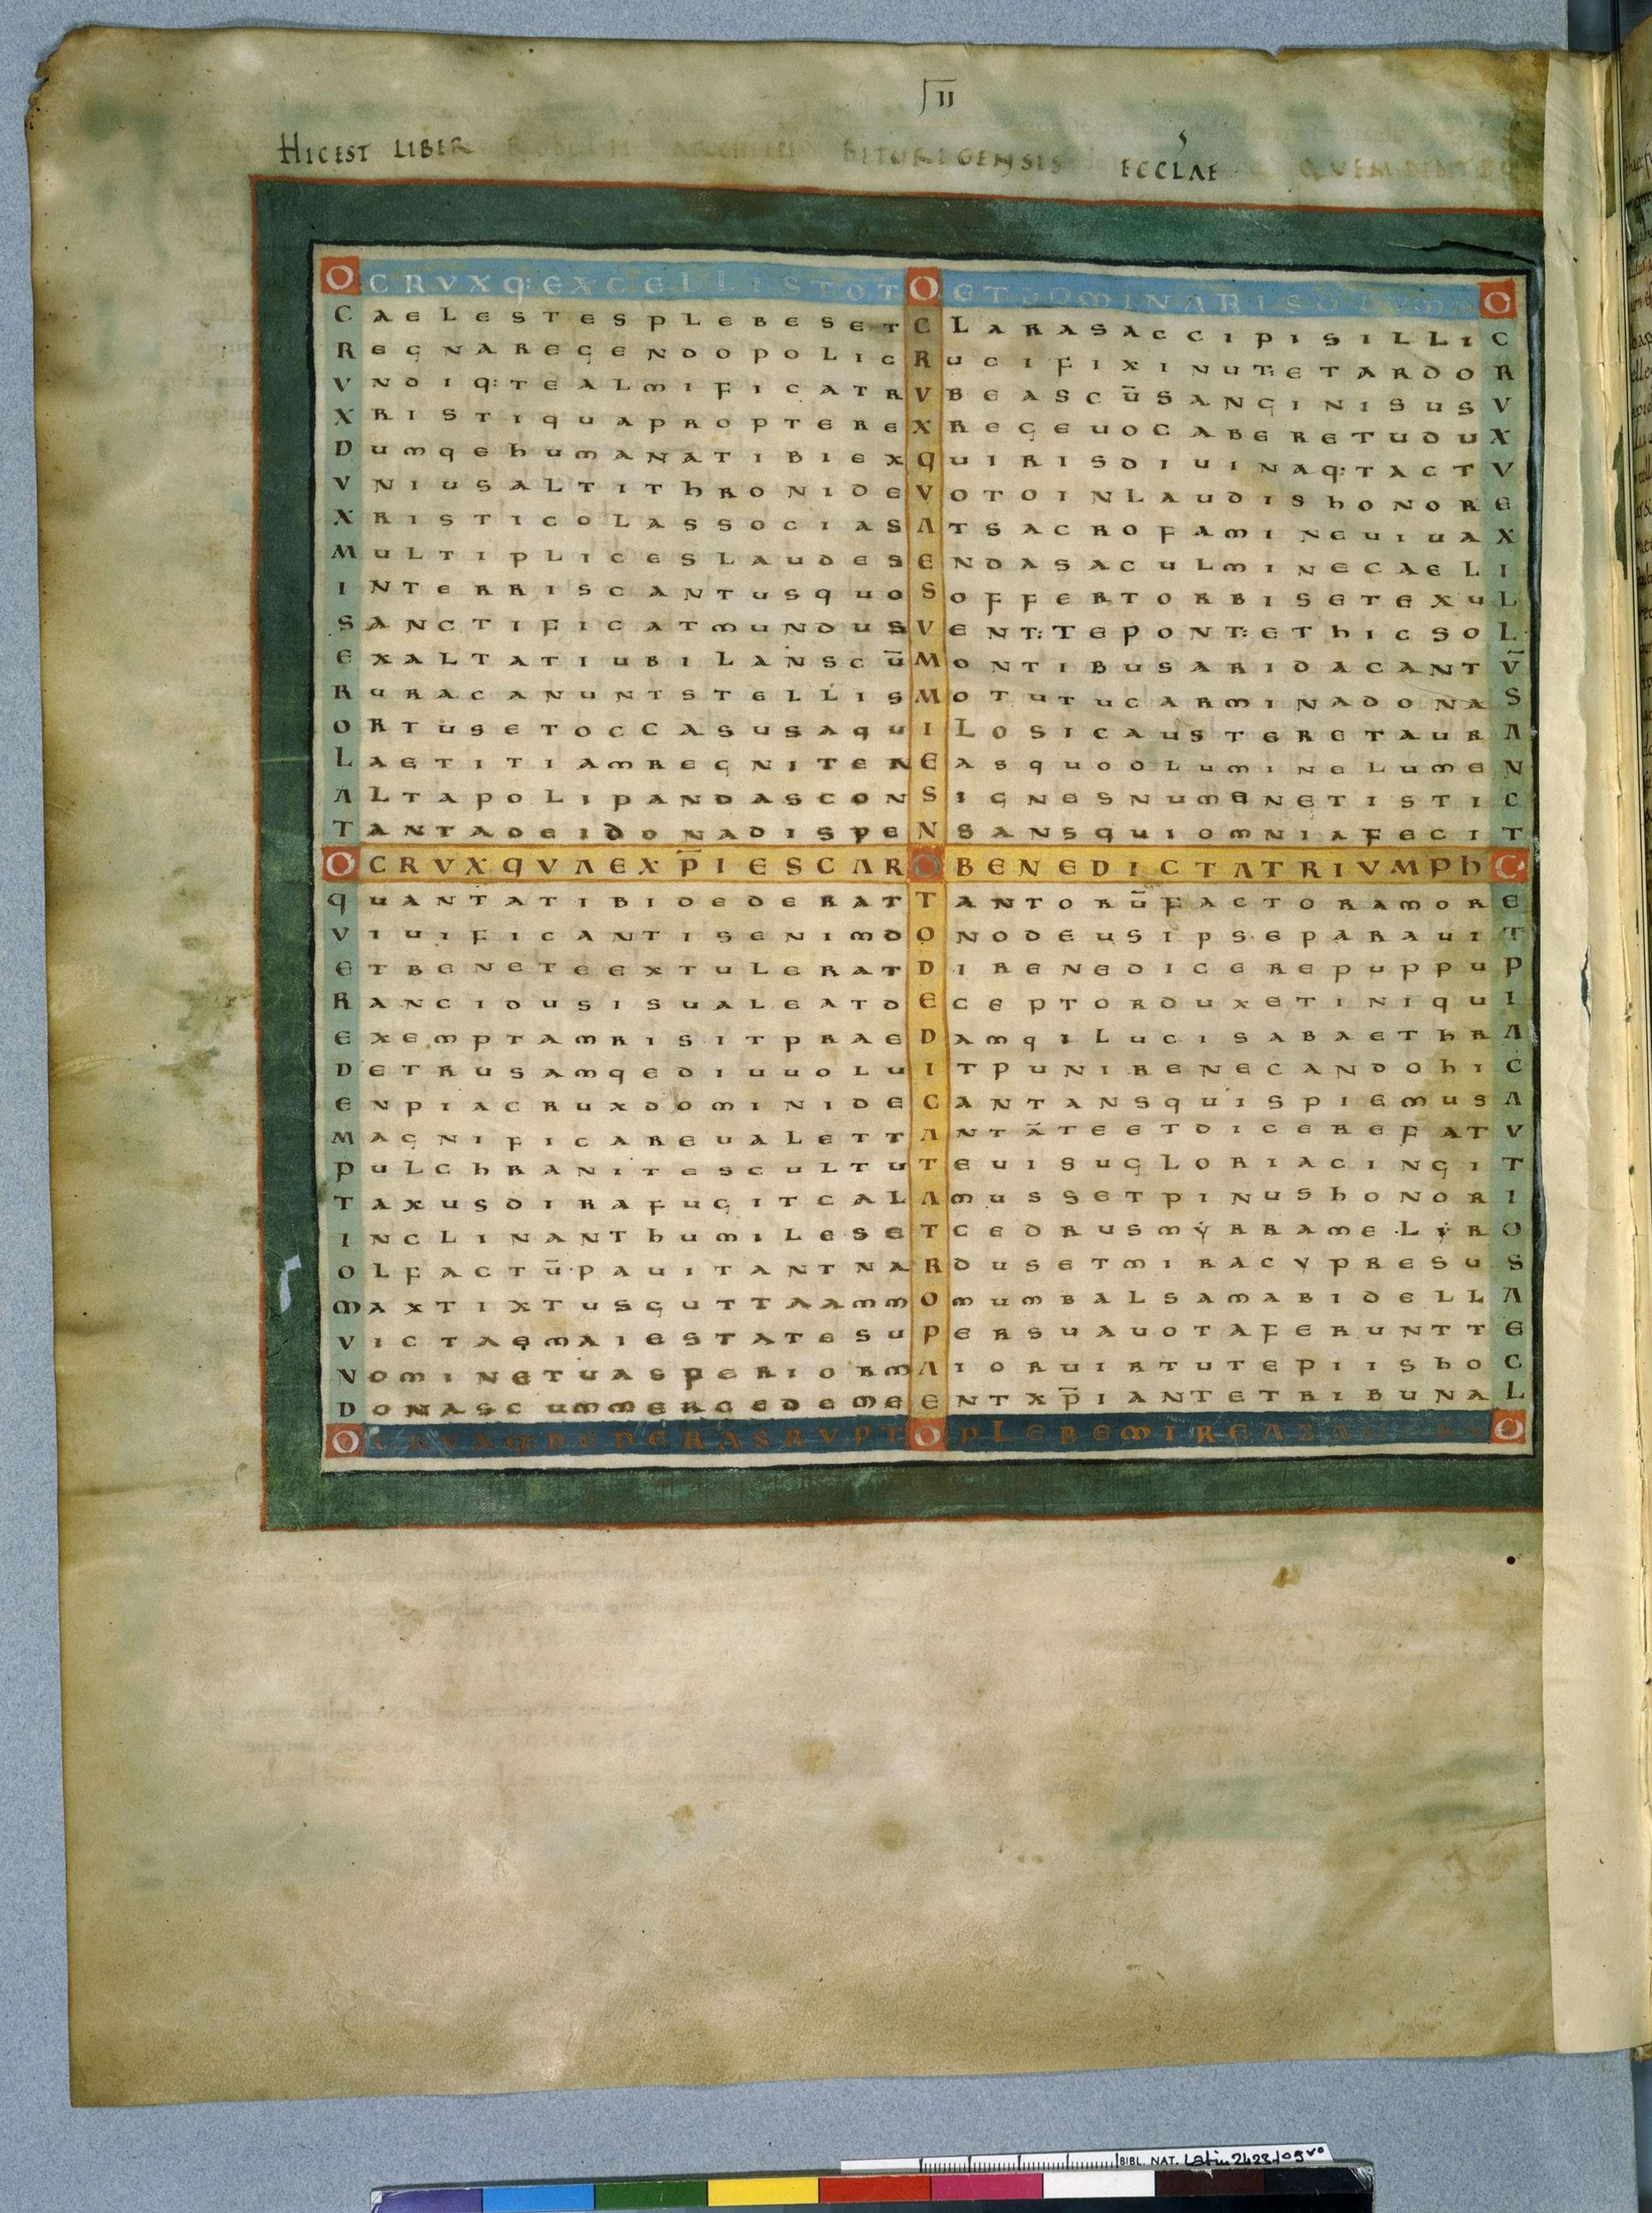 II
HIC EST LIBER BITURIGENSIS ECCLAE QVEM DEDIT
OCRVXQ:EXCELLISTOTOETDOMINARISOLYMPO
CAELESTESPLEBESETCLARASACCIPISILLIC
REGNAREGENDOPOLICRUCIFIXINUT:ETARDOR
VNDIQ:TEALMIFICATRVBEASCŪSANGINISUSV
XRISTIQUAPROPTEREXREGEUOCABERETUDUX
DUMQEHUMANATIBIEXQUIRISDIUINAQ:TACTV
VNIUSALTITHRONIDEVOTOINLAUDISHONORE
XRISTICOLASSOCIASATSACROFAMINEUIUAX
MULTIPLICESLAUDESENDASACULMINECAELI
INTERRISCANTUSQUOSOFFERTORBISETEXUL
SANCTIFICATMUNDUSVENT:TEPONT:ETHICSOL
EXALTATIUBILANSCŪMONTIBUSARIDACANTV̄
RURACANUNTSTELLISMOTUTUCARMINADONAS
ORTUSETOCCASUSAQUILOSICAUSTERETAURA
LAETITIAMREGNITENEASQUODLUMINELUMEN
ALTAPOLIPANDASCONSIGNESNUMENETISTIC
TANTADEIDONADISPENSANSQUIOMNIAFECIT
OCRVXQVAEXP̄IESCAROBENEDICTATRIVMPHO
QUANTATIBIDEDERATTANTORŪFACTORAMORE
VIUIFICANTISENIMDONODEUSIPSEPARAUIT
ETBENETEEXTULERATDIBENEDICEREPUPPUP
RANCIDUSISUALEATDECEPTORDUXETINIQUI
EXEMPTAMRISITPRAEDAMQILUCISABAETHRA
DETRUSAMQEDIUUOLUITPUNIRENECANDOHIC
ENPIACRUXDOMINIDECANTANSQUISPIEMUSA
MAGNIFICAREUALETTANTĀTEETDICEREFATV
PULCHRANITESCULTUTEUISUGLORIACINGIT
TAXUSDIRAFUGITCALAMUSSETPINUSHONORI
INCLINANTHUMILESETCEDRUSMYRRAMELYRO
OLFACTŪPAUITANTNARDUSETMIRACYPRESUS
MAXTIXTUSGUTTAAMMOMUMBALSAMABIDELLA
VICTAEMAIESTATESUPERSUAUOTAFERUNTTE
NOMINETUASPERIORMAIORUIRTUTEPIISHOC
DONASCUMMERGEDEMEENTXP̄IANTETRIBUNAL
OCRVXQ:DEDERASRVPTOPLEBEMIREAB
BIBL. NAT. Latin 2423 / 05 vo